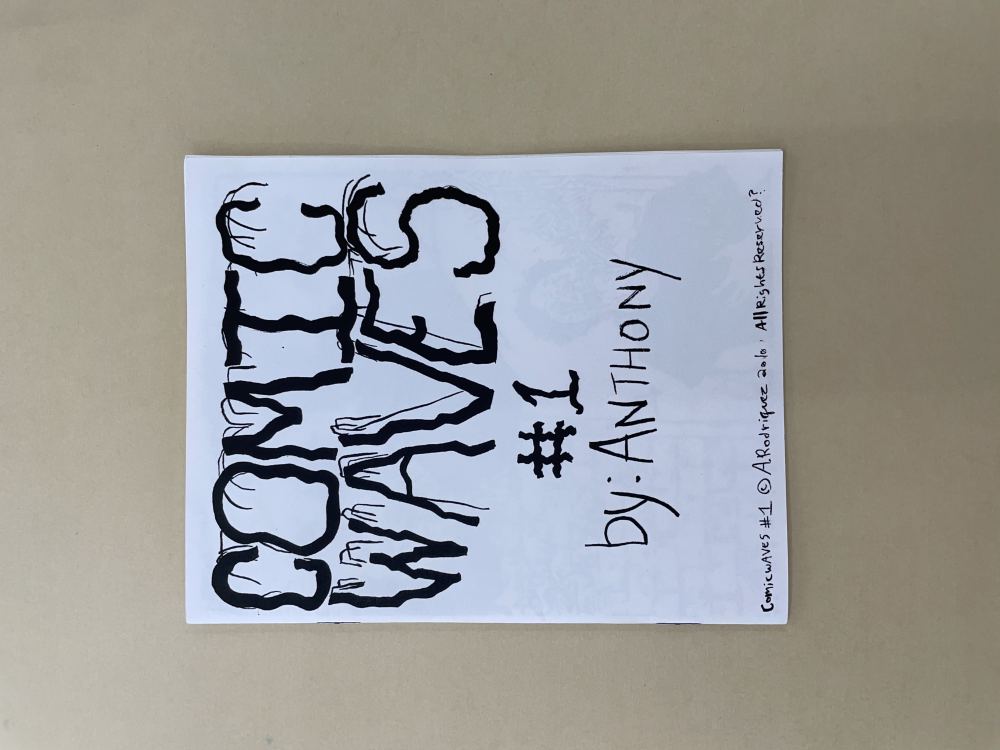 COMIC
WAVES
#1
by: ANTHONY
Comicwaves #1 © A.Rodriquez 2010. All Rights Reserved?